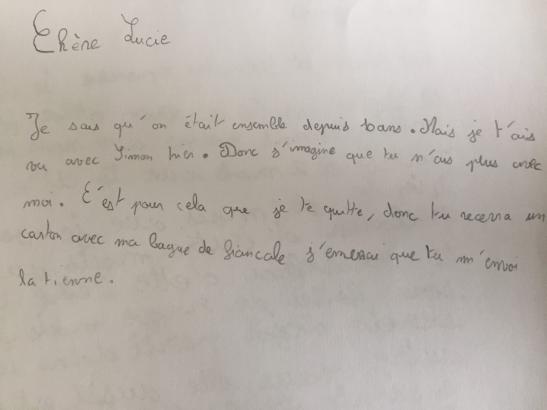 Chène Lucie
Je sais qu'on était ensemble depuis 10ans. Mais je t'ais
vu avec Simon hier. Donc j'imagine que tu n'ais plus avec
moi. C'est pour cela que je te quitte, donc tu recevra un
carton avec ma bague de fiancale j'emerai que tu m'envoi
la tienne.